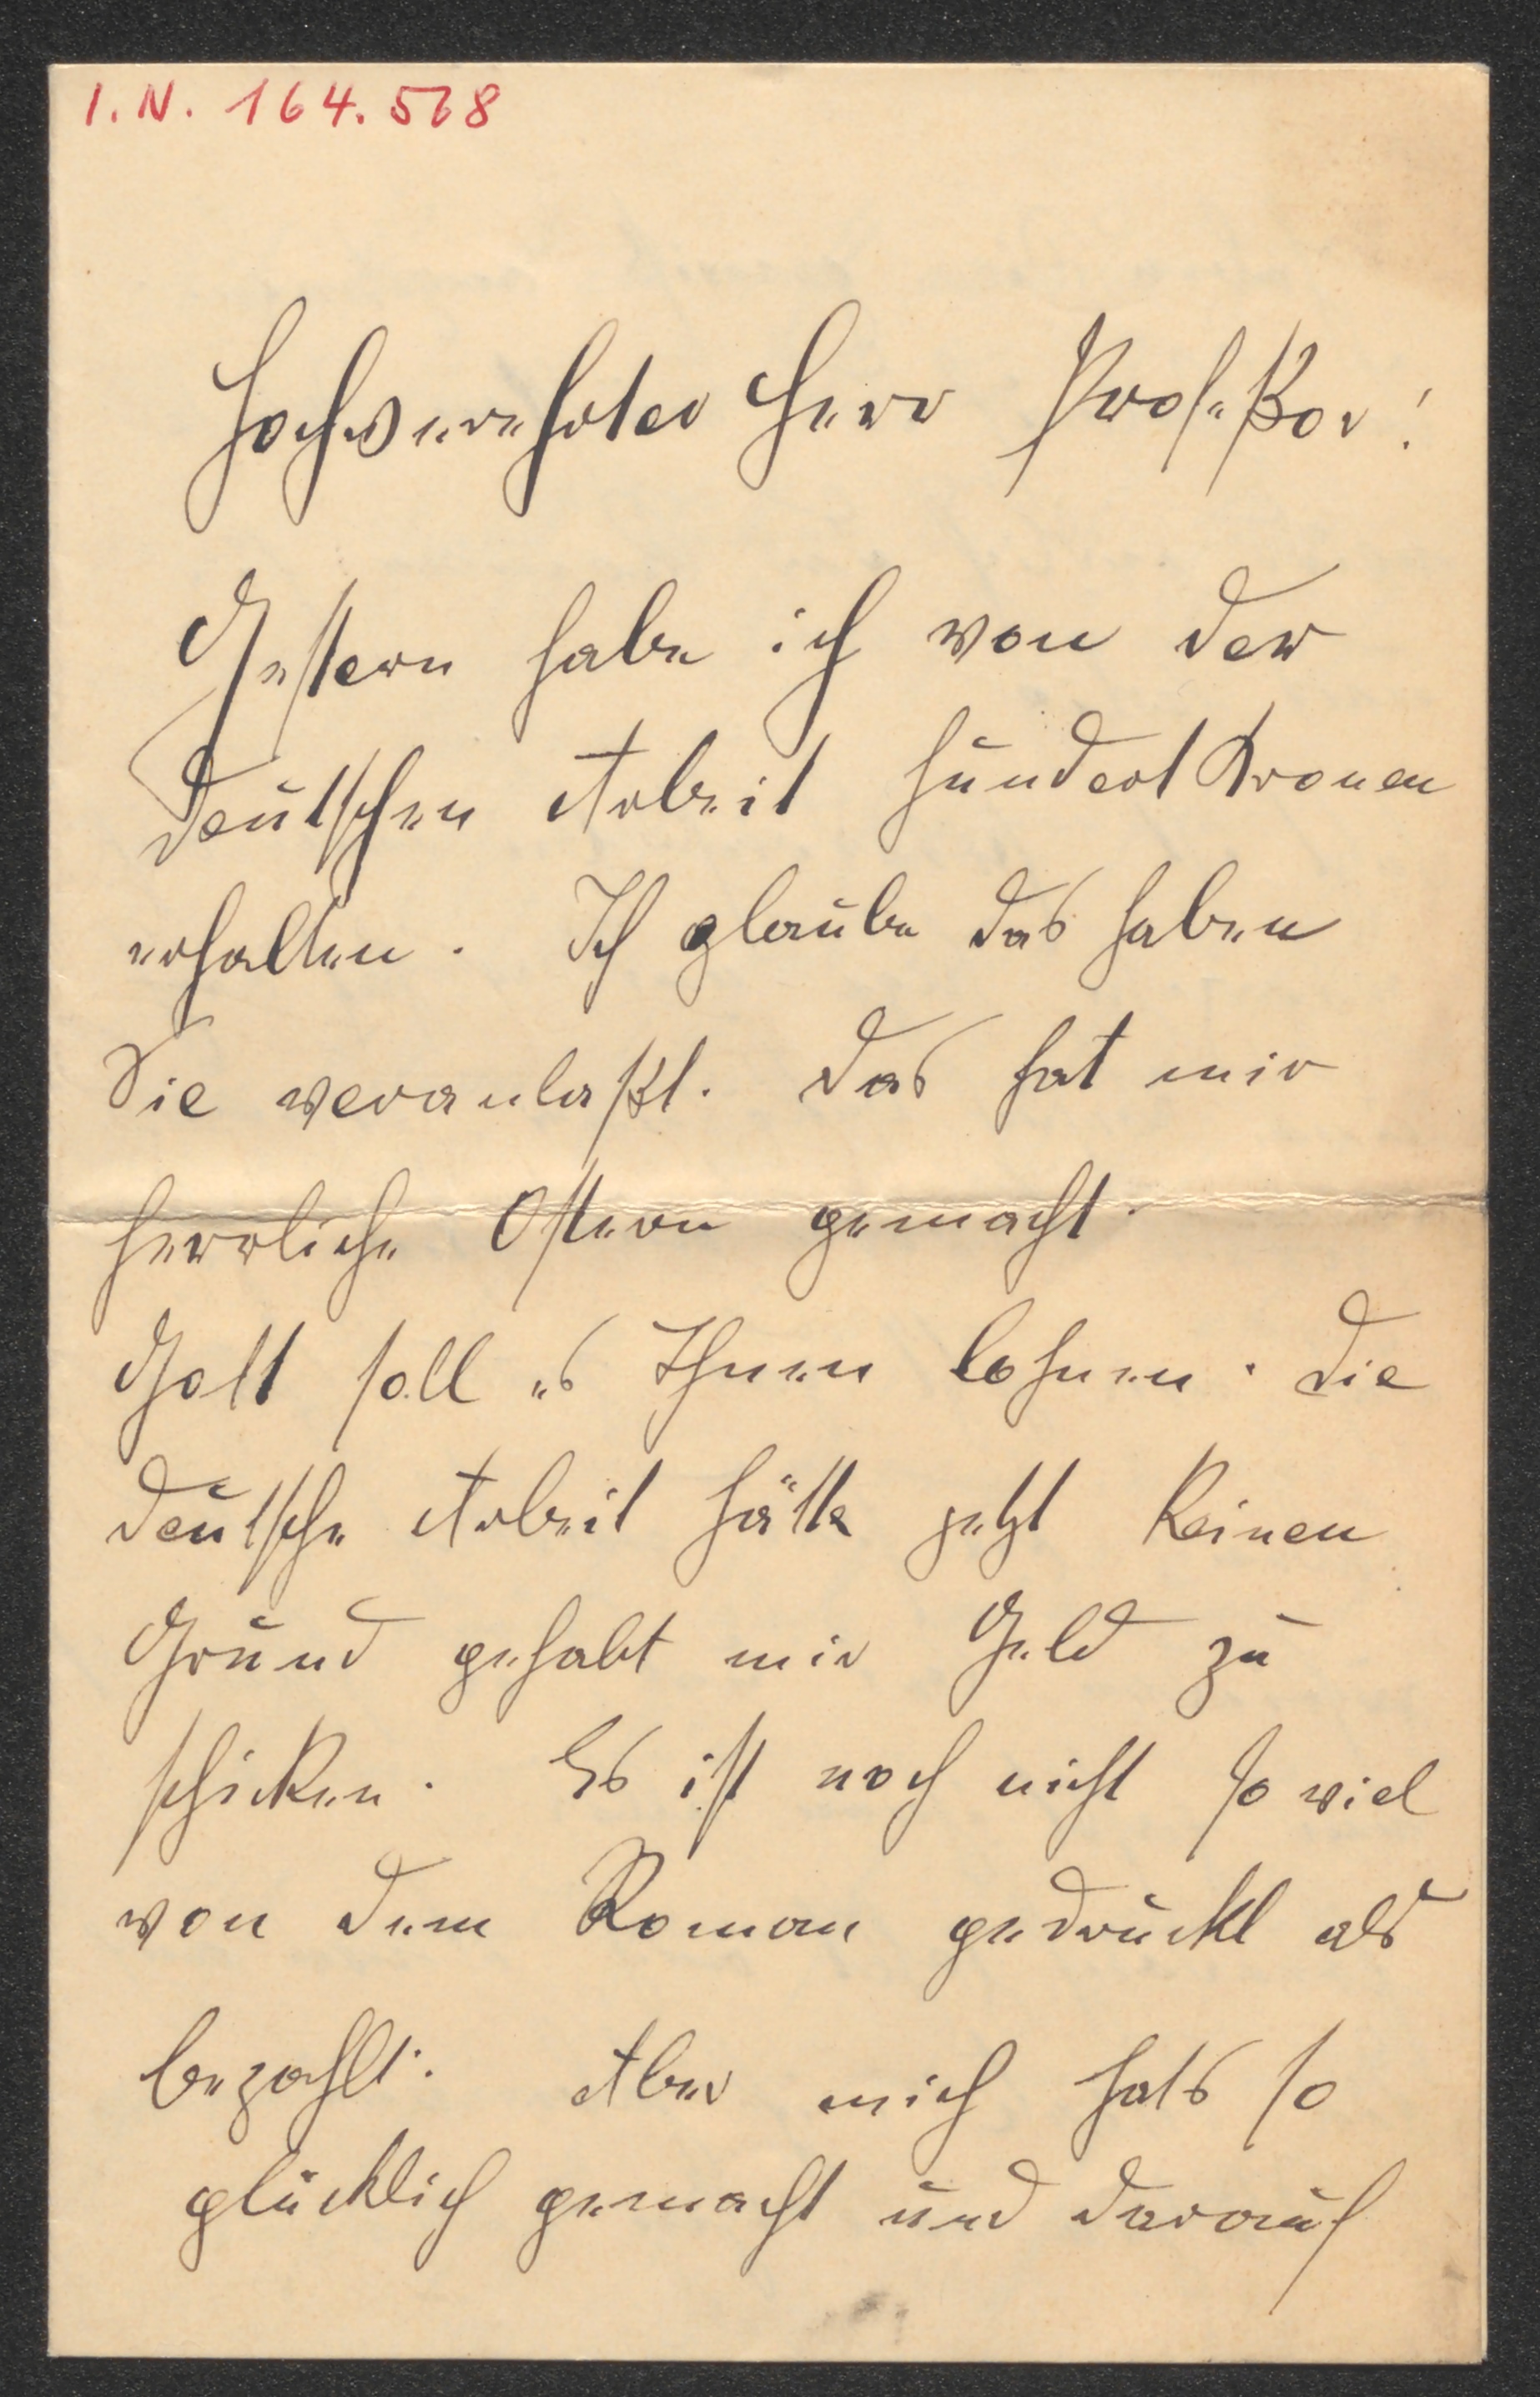 I.N. 164.568
Hochverehrter Herr Profeßor!
Gestern habe ich von der
Deutschen Arbeit hundert Kronen
erhalten. Ich glaube das haben
Sie veranlaßt. Das hat mir
herrliche Ostern gemacht.
Gott soll es Ihnen lohnen. Die
Deutsche Arbeit hätte jetzt keinen
Grund gehabt mir Geld zu
schicken. Es ist noch nicht so viel
von dem Roman gedruckt als
bezahlt. Aber mich hats so
glücklich gemacht und darauf